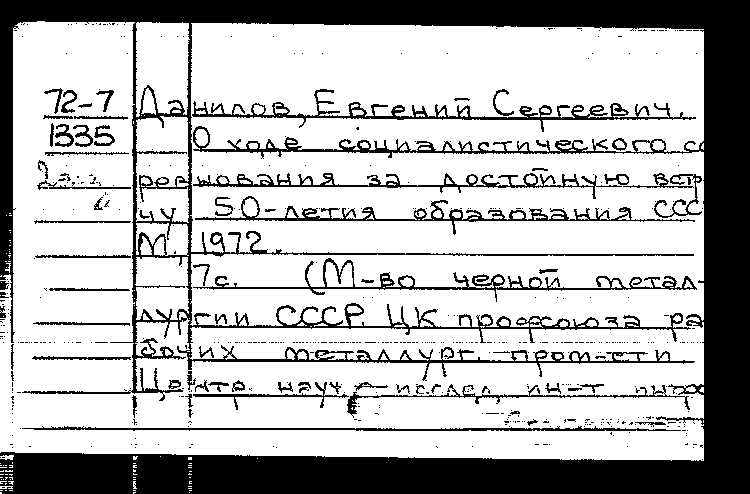 72-7 Данилов, Евгений Сергеевич.
1335 О ходе социалистического со
ревнования за достойную встр
чу 50-летия образования ССС
М., 1972.
7с. (М-во черной метал-
лургии СССР. ЦК профсоюза ра
бочих металлург. пром-сти
Центр. науч.-исслед. ин-т